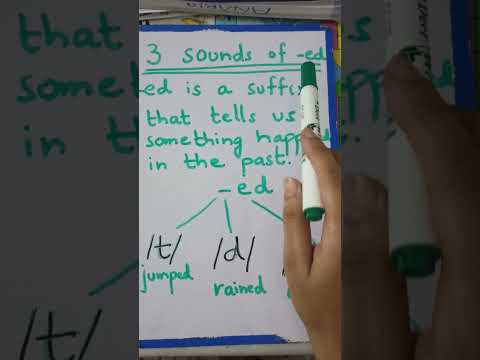 3 sounds of -ed
-ed is a
that tells us
something
in the past.
-ed
/t/ /d/
jumped rained